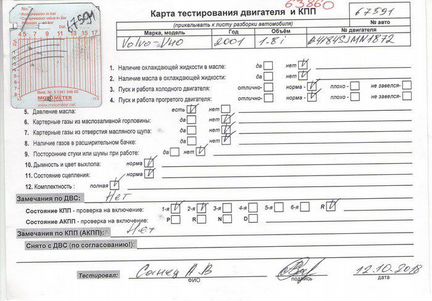 63860
67591
Карта тестирования двигателя и КПП
67591
(прикалывать к листу разборки автомобиля)
№ авто
Марка, модель Год Объём № двигателя
Volvo-V40 2001 1.8i B4184SJMN1872
1. Наличие охлаждающей жидкости в масле: да нет V
2. Наличие масла в охлаждающей жидкости: да нет V
3. Пуск и работа холодного двигателя: отлично- норма - V плохо- не завелся-
4. Пуск и работа прогретого двигателя: отлично- норма - V плохо- не завелся-
5. Давление масла: есть V нет
6. Картерные газы из маслозаливной горловины: да нет V
7. Картерные газы из отверстия масляного щупа: да нет V
8. Наличие газов в расширительном бачке: да нет V
9. Посторонние стуки или шумы при работе: да нет V
10. Дымность и цвет выхлопа: норма V
11. Состояние сцепления: норма V
12. Комплектность : полная V
Замечания по ДВС: Нет
Состояние КПП - проверка на включение: 1-я V 2-я V 3-я V 4-я V 5-я V 6-я R V
Состояние АКПП - проверка на включение: P R N D
Замечания по КПП (АКПП): Нет
Снято с ДВС (по согласованию):
Тестировал: А.В 12.10.2018
ФИО подпись дата